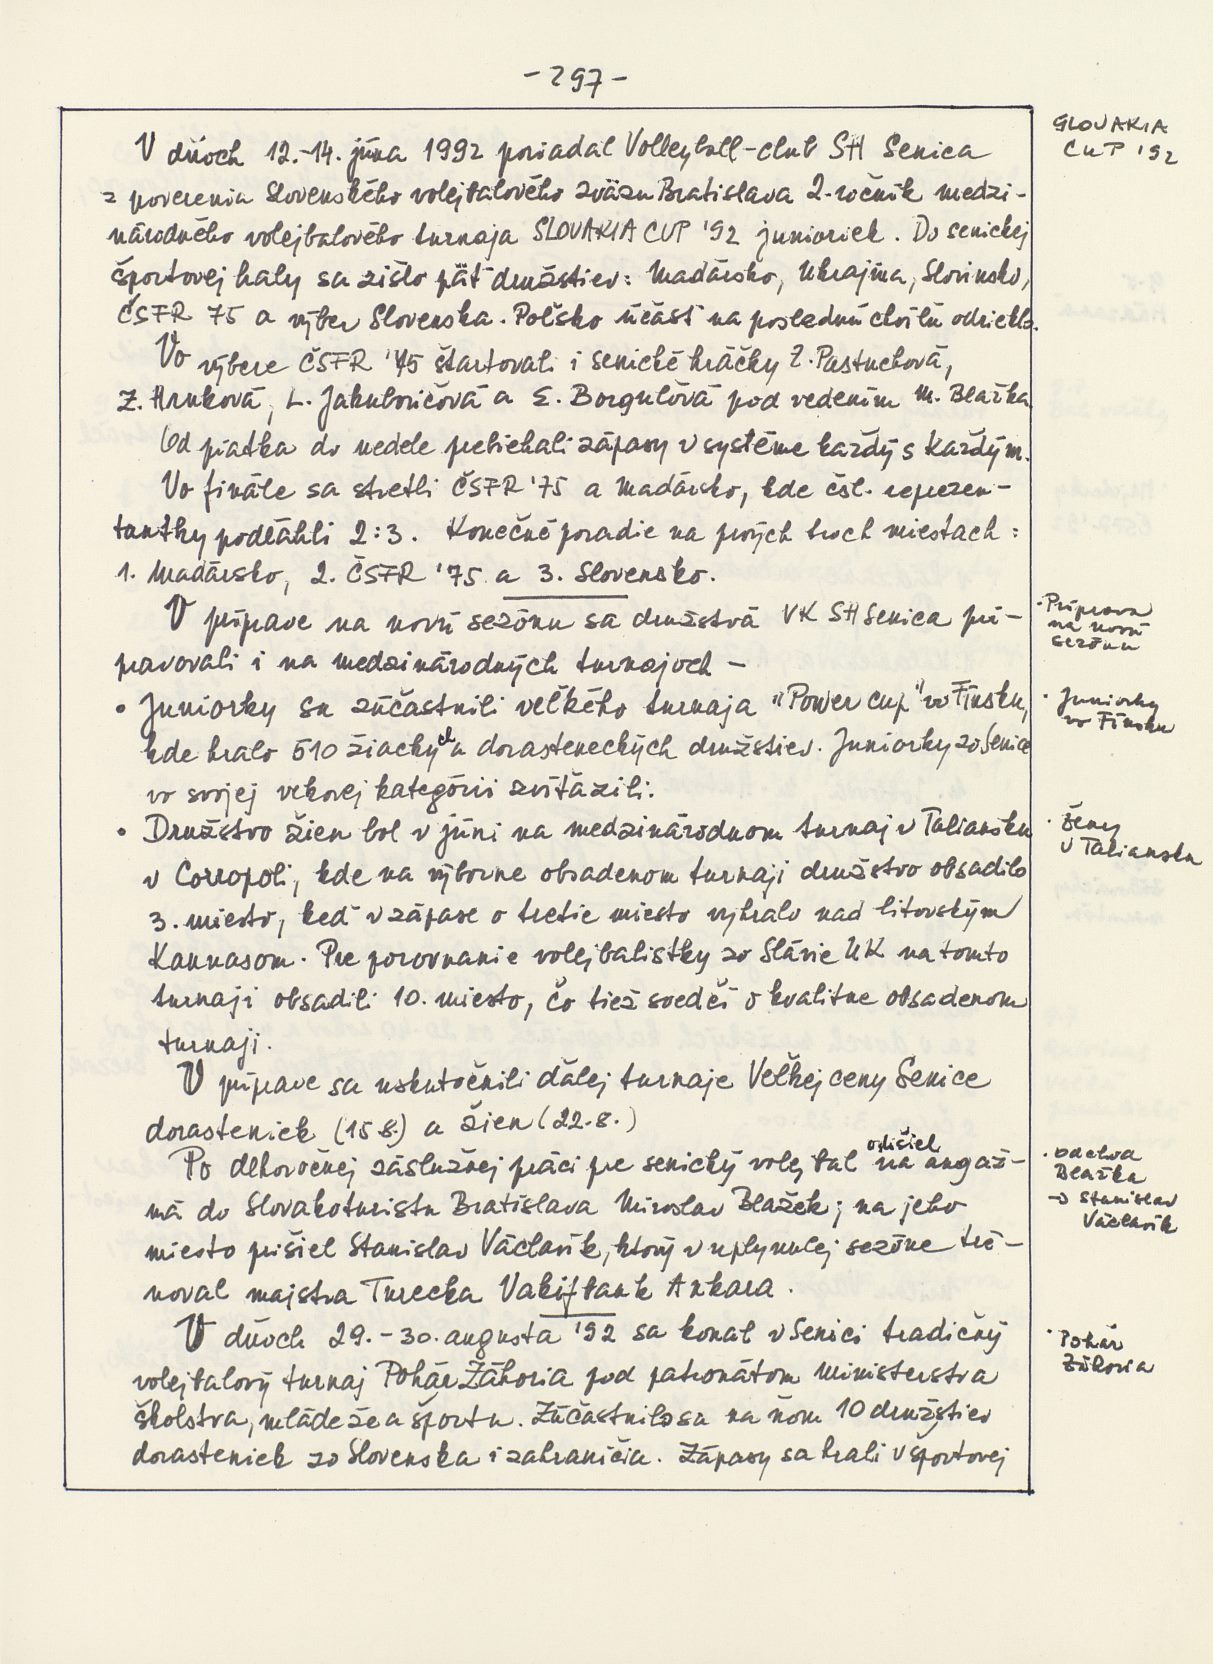 - 297 -
SLOVAKIA
CUP '92
V dňoch 12.-14. júna 1992 poriadal Volleyball-club SH Senica
z poverenia Slovenského volejbalového zväzu Bratislava 2. ročník medzi-
národného volejbalového turnaja SLOVAKIA CUP '92 junioriek. Do senickej
športovej haly sa zišlo päť družstiev: Maďarsko, Ukrajina, Slovinsko,
ČSFR 75 a výber Slovenska. Poľsko účasť na poslednú chvíľu odrieklo.
Vo výbere ČSFR '75 štartovali i senické hráčky Z. Pastuchová,
Z. Hruková, L. Jakubovičová a E. Borgulová pod vedením M. Blažka
Od piatka do nedele prebiehali zápasy v systéme každý s každým.
Vo finále sa stretli ČSFR '75 a Maďarsko, kde čsl. reprezen-
tantky podľahli 2:3. Konečné poradie na prvých troch miestach:
1. Maďarsko, 2. ČSFR '75 a 3. Slovensko.
V príprave na novú sezónu sa družstvá VK SH Senica pri-
pravovali i na medzinárodných turnajoch -
· Príprava
na novú
sezónu
• Juniorky sa zúčastnili veľkého turnaja "Power cup" vo Fínsku,
kde hralo 510 žiackych a dorasteneckých družstiev. Juniorky zo Senice
vo svojej vekovej kategórii zvíťazili.
· Juniorky
vo Fínsku
• Družstvo žien bol v júni na medzinárodnom turnaj v Taliansku
v Corropoli, kde na výborne obsadenom turnaji družstvo obsadilo
3. miesto, keď v zápase o tretie miesto vyhralo nad litovským
Kaunasom. Pre porovnanie volejbalistky zo Slávie UK na tomto
turnaji obsadili 10. miesto, čo tiež svedčí o kvalitne obsadenom
turnaji.
· Ženy
v Taliansku
V príprave sa uskutočnili ďalej turnaje Veľkej ceny Senice
dorasteniek (15.8.) a žien (22.8.)
Po dlhoročnej záslužnej práci pre senický volejbal odišiel na angaž-
má do Slovakoturistu Bratislava Miroslav Blažek; na jeho
miesto prišiel Stanislav Václavík, ktorý v uplynulej sezóne tré-
noval majstra Turecka Vakifbank Ankara.
· odchod
Blažka
→ Stanislav
Václavík
V dňoch 29.-30. augusta '92 sa konal v Senici tradičný
volejbalový turnaj Pohár Záhoria pod patronátom Ministerstva
školstva, mládeže a športu. Zúčastnilo sa na ňom 10 družstiev
dorasteniek zo Slovenska i zahraničia. Zápasy sa hrali v športovej
· Pohár
Záhoria